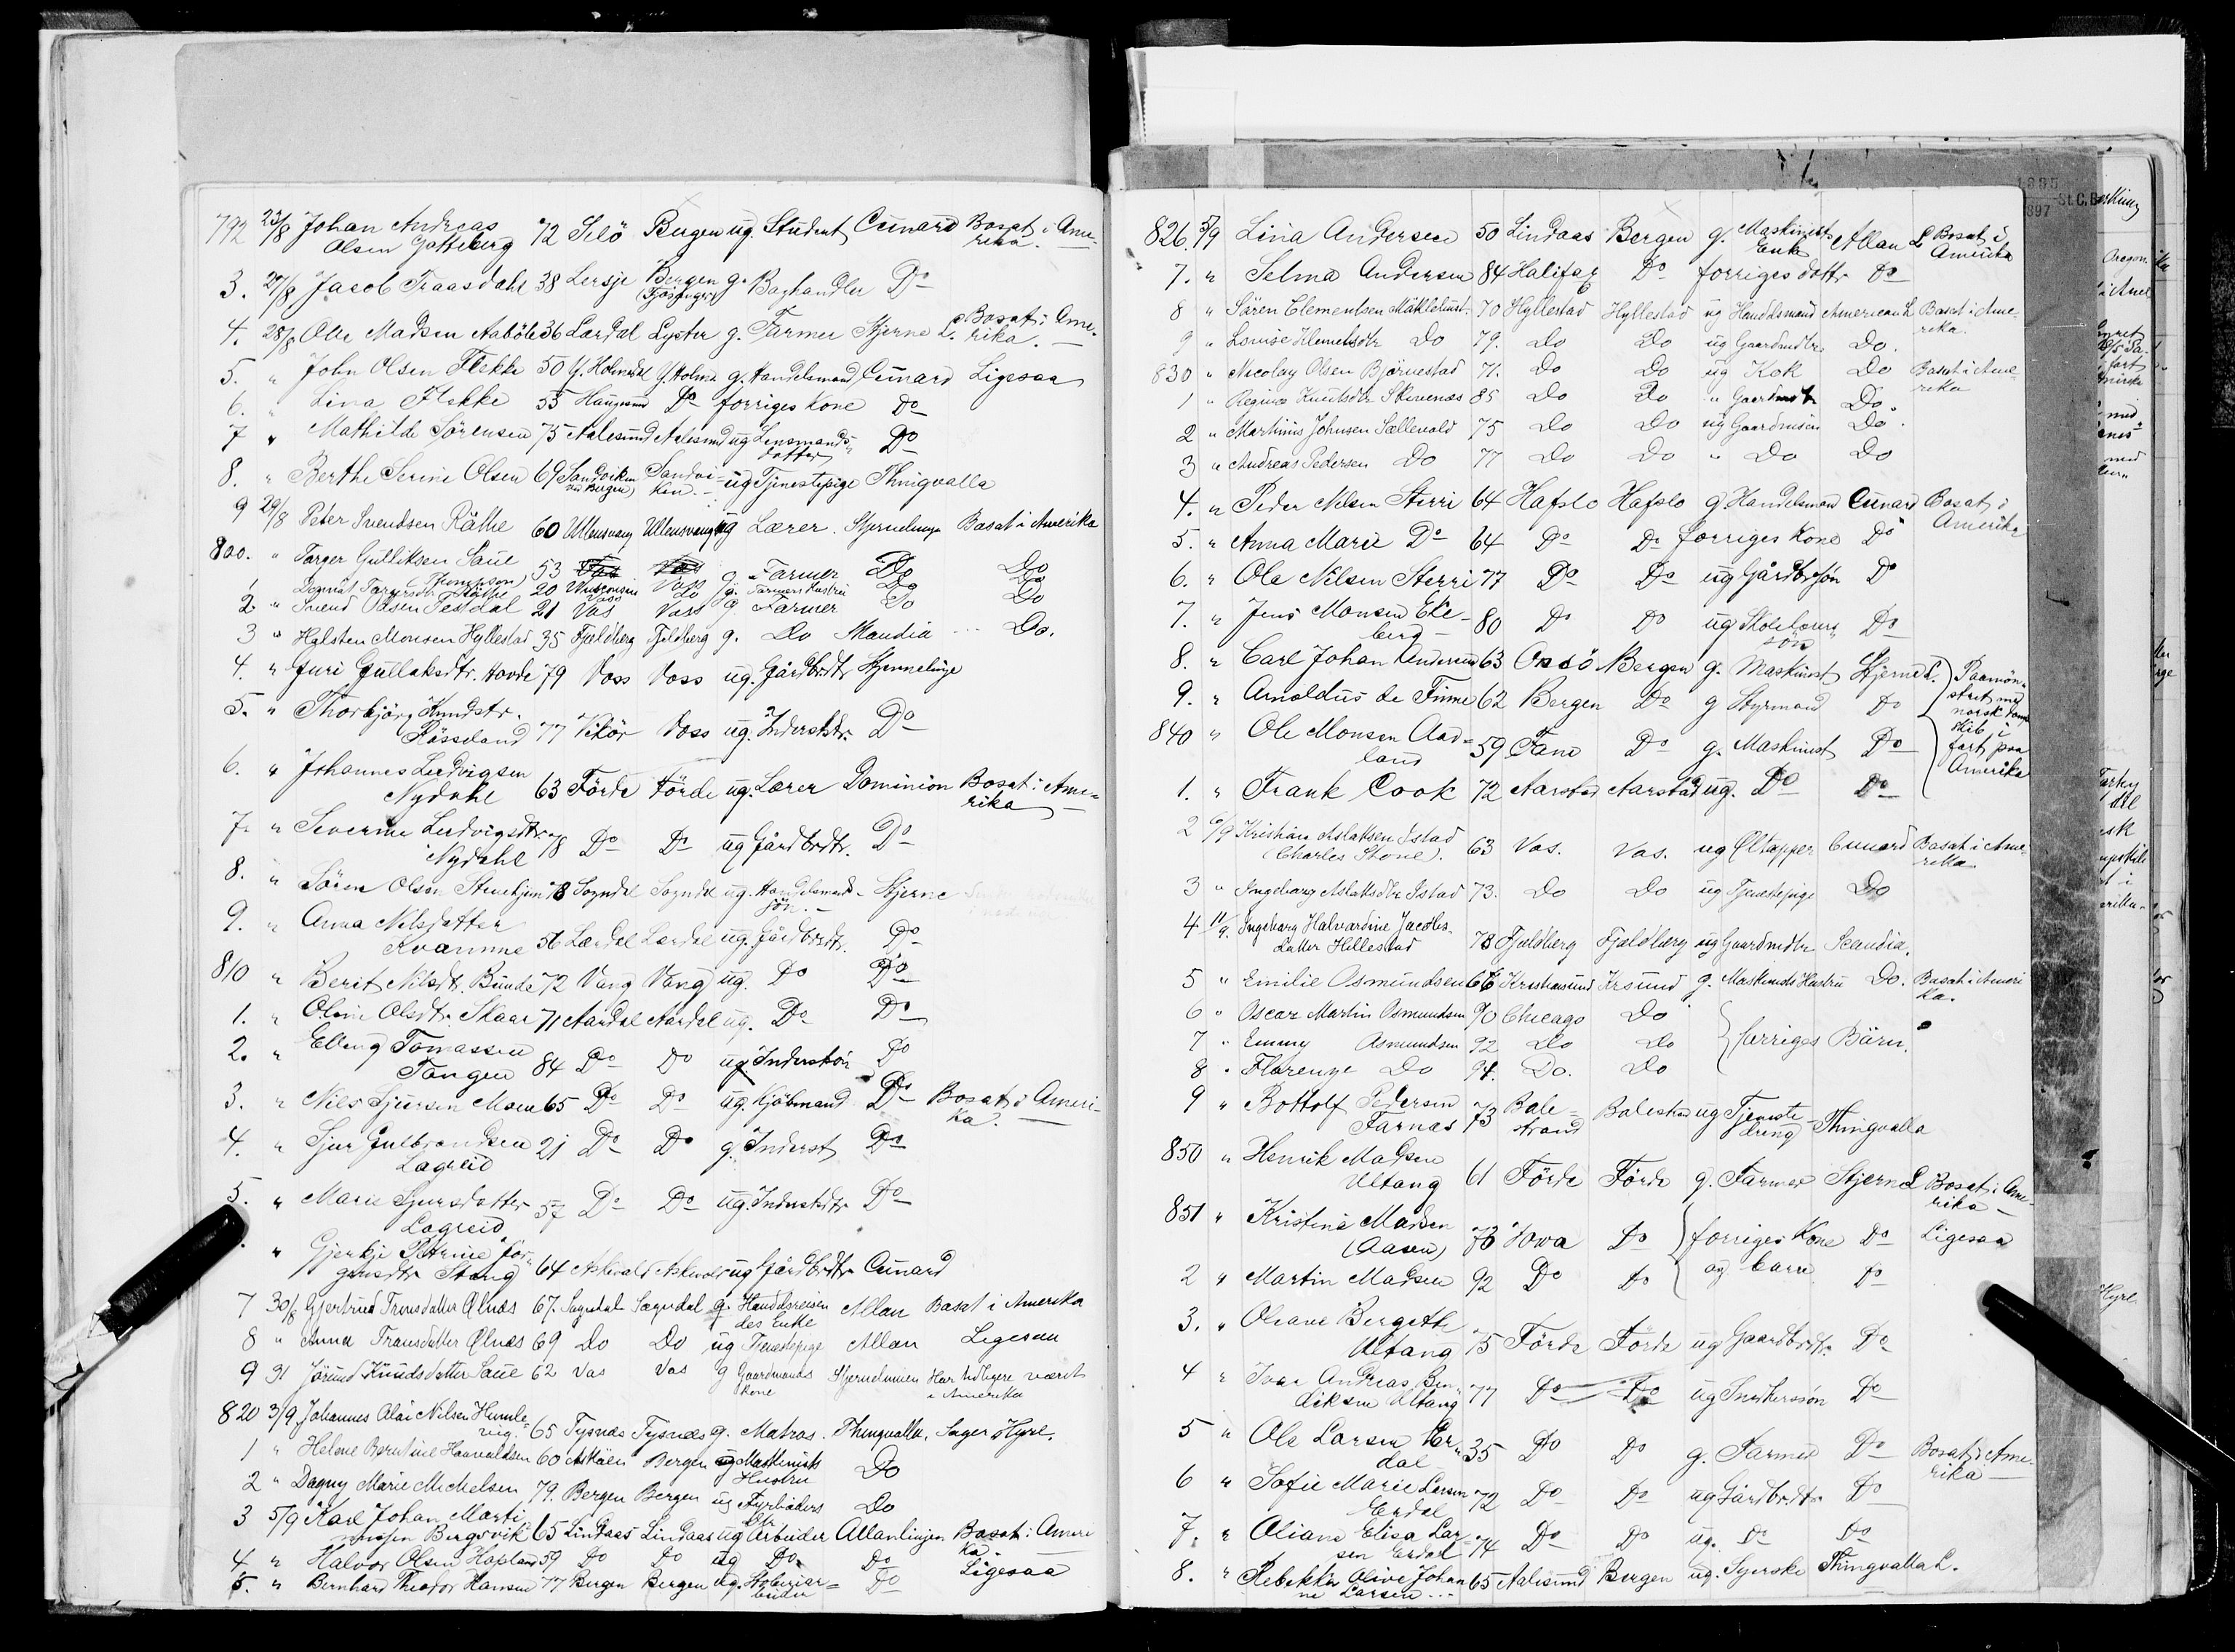 792 23/8 Johan Andreas
Olsen Gotteberg 72 Selö Bergen ug. Student Cunard Bosat i Ame-
rika.
3. 27/8 Jacob Traasdahl 38 Lersje Bergen g. Boghandler Do
4. 28/8 Ole Madsen Aaböle 36 Lærdal Lyster g. Farmer Stjerne L. Bosat i Ame-
rika.
5. " John Olsen Flekke 50 Y. Holmedal Y. Holm. g. Handelsmand Cunard Ligesaa
6. " Lina Flekke 55 Haugesund Do forriges Kone Do
7 " Mathilde Sörensen 75 Aalesund Aalesund ug Lensmands-
datter Do
8. " Berthe Serine Olsen 69 Sandviken Sandvi-
(ved Bergen) ken. ug Tjenestepige Thingvalla
9 29/8 Peter Svendsen Räthe 60 Ullensvang Ullensvang ug Lærer. Stjernelinje Bosat i Amerika
800. " Torger Gulliksen Saue 53 Vas Vas g. Farmer Do Do
(Thompson)
1 20 Wisconsin Do g. Farmers Hustru Do Do
2 " Svend Olsen Tesdal 21 Vas Vass g Farmer Do Do
3 " Halsten Monsen Hyllestad 35 Fjeldberg Fjeldberg g. Do Do.
4. " Guri Gullaksdtr. Hovde 79 Voss Voss ug. Gårdbrdtr Stjernelinje
5. " Thorbjörg Knudstr.
Rösseland 77 Vikör Voss ug. Inderstdtr. Do
6. " Johannes Ludvigsen
Nydahl 63 Förde Förde ug. Lærer Dominion Bosat i Ame-
rika
7. " Severine Ludvigsdtr.
Nydahl 78 Do Do ug Gårdbrdtr. Do
8. " Sören Olson Stenehjem 78 Sogndal Sogndal ug. Handelsmands-
sön. Stjerne
9. " Anna Nilsdatter
Kvamme 56 Lærdal Lærdal ug. Gårdbrdtr. Do
810 " Berit Nilsdt. Bunde 72 Vang Vang ug. Do Do
1. " Oline Olsdtr. Skaar 71 Aardal Aardal ug. Do Do
2. " Elling Tomassen
Tangen 84 Do Do ug Inderstsön Do
3. " Nils Sjursen Moen 65 Do Do ug. Kjöbmand Do Bosat i Ameri-
ka?
4. " Sjur Gulbrandsen
Lægreid 21 Do Do g. Inderst Do
5. " Marie Sjursdatter
Lægreid 57 Do Do ug. Inderstdtr Do
" Gjerkje Petrine Jör-
gensdtr Stang 64 Askvold Askvold ug Gårdbrdtr Cunard
7 30/8 Gjertrud Trensdatter Ølnæs 67. Sogndal Sogndal g. Handelsreisen-
des Enke Allan Bosat i Amerika
8 " Anna Transdatter Ølnæs 69 Do Do ug Tjenestepige Allan Ligesaa
9 31 Jörund Knudsdatter Saue 62 Vas Vas g Gaardmands
Kone Stjernelinien Har tidligere været
i Amerika
820 3/9 Johannes Olai Nilsen Humle-
vig. 65 Tysnæs Tysnæs g. Matros. Thingvalla. Søger Hyre.
1 " Helene Berntine Haavaldsen 60 Askøen Bergen g Maskinists
Hustru Do
2 " Dagny Marie Michelsen 79. Bergen Bergen ug Fyrbøders
Dtr. Do
3 5/9 Karl Johan Marti
nusen Bergsvik 65 Lindaas Lindaas ug Arbeider Allanlinjen Bosat i Ameri
ka.
4. " Halvor Olsen Hopland 59 Do Do ug Do. Do Ligesaa
5. " Bernhard Theodor Hansen 77 Bergen Bergen ug. Do
826. 5/9 Lina Andersen 50 Lindaas Bergen g. Maskinist
Enke Allan L Bosat i
Amerika
7. " Selma Andersen 84 Halifax Do forriges dottr Do
8 " Sören Clementsen 70 Hyllestad Hyllestad ug Handelsmand American L Bosat i Ame-
rika.
9 " Lovise Klemetsdtr Do 79. Do Do ug Gaardmdtr. Do.
830 " Nicolay Olsen Björnestad 71. Do Do ug Kok Do Bosat i Ame-
rika
1 " Regine Knutsdtr Skivenæs 85 Do Do " Gaardmdtr Do.
2 " Martinus Johnsen Sællevold 75 Do Do ug Gaardmsön Do.
3 " Andreas Pedersen Do 77 Do Do " Do Do
4. " Peder Nilsen Sterri 64 Hafslo Hafslo g. Handelsman Cunard Bosat i
Amerika
5. " Anna Marie Do 64 Do Do forriges Kone Do
6. " Ole Nilsen Sterri 77 Do Do ug Gårdbrsön Do
7. " Jens Monsen Eke-
berg 80 Do Do ug Skolelærer-
sön Do
8. " Carl Johan Andersen 63 Onsö Bergen g. Maskinist Stjerne L. Paamön-
9. " Arnoldus de Fine 62 Bergen Do g Styrmand Do stret med
norsk Damp
840 " Ole Monsen Aad-
land 59 Fane Do g. Maskinist Do Skib i
fart paa
Amerika
1. " Frank Cook 72 Aarstad Aarstad ug. Do Do
2 6/9 Kristian Aslaksen Istad
(Charles Stone). 63 Vas. Vas. ug Øltapper Cunard Bosat i Ame-
rika.
3 " Ingeborg Aslaksdtr Istad 73. Do Do ug Tjenestepige Do
4 11/9. Ingeborg Halvardine Jacobs-
datter Hillestad 78 Fjeldberg Fjeldberg ug Gaardmdtr Scandia.
5 " Emilie Osmundsen 66 Kristiansund Krsund g. Maskinists Hustru Do. Bosat i Ameri
ka.
6 " Oscar Martin Osmundsen 90 Chicago Do
7 " Emmy Osmundsen 92 Do Do forriges Börn.
8 " Florenze Do 94. Do. Do
9 " Bottolf Pedersen
Farnæs 73 Bale-
strand Balestrand ug Tjeneste-
dreng Thingvalla
850 " Henrik Madsen
Ultang 61 Förde Förde g. Farmer Stjerne L Bosat i Ame-
rika
851 " Kristina Madsen
(Aasen) 70 Iowa Do forriges Kone Do Ligesaa
2 " Martin Madsen 92 Do Do og barn Do
3. " Oliane Bergithe
Ultang 75 Förde Förde ug Gaardbrdtr. Do
4 " Ivar Andreas Ben-
diksen Ultang 77 Do Do ug Snedkersön Do
5 " Ole Larsen Er-
dal 35 Do Do g. Farmer Do Bosat i Ame-
rika
6 " Sofie Marie Larsen
Erdal 72 Do Do ug Gårdbrdtr Do
7. " Oliane Elisa Lar-
sen Erdal 74 Do Do ug. Do Do
8. " Rebekka Olive Johan-
ne Larsen 65 Aalesund Bergen ug. Syerske Thingvalla L.